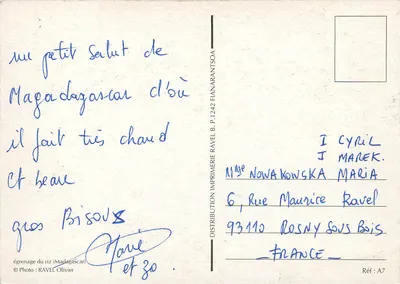 un petit salut de
Magadagascar d'où
il fait très chaud
et beau
gros BISOUX
Marie
et zo
égrenage du riz (Madagascar)
© Photo : RAVEL Olivier
DISTRIBUTION IMPRIMERIE RAVEL B. P. 1242 FIANARANTSOA
I CYRIL
J MAREK.
Mme NOWAKOWSKA MARIA
6, Rue Maurice Ravel
93110 ROSNY SOUS BOIS
_FRANCE_
Réf : A7